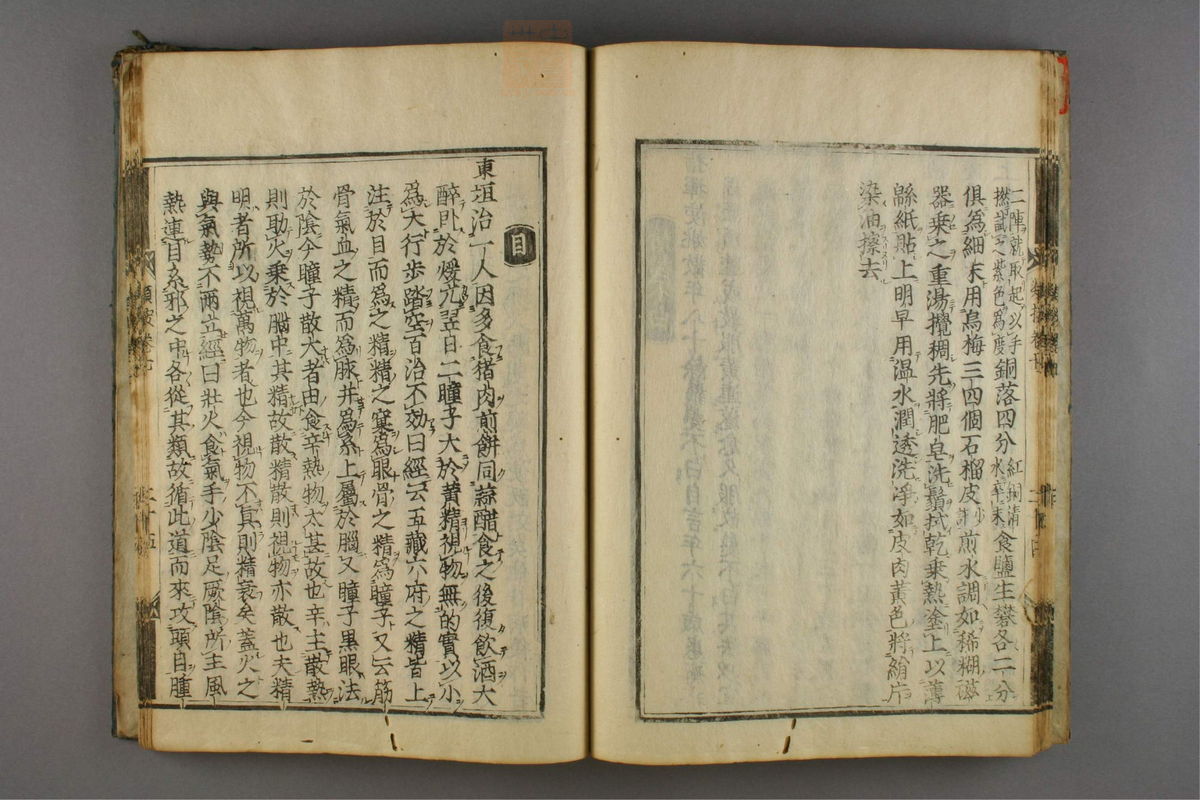 二陣就取起以手
撚試之紫色為度銅落四分紅銅清
水淬末食鹽生礬各二分
俱為細末用烏梅三四個石榴皮少許煎水調如稀糊
器乗之重湯攪稠先將肥皂洗鬚拭乾乗熱塗上以薄
緜紙貼上明早用温水潤透洗淨如皮肉黃色將絹片
染油擦去
目
東垣治一人因多食猪肉煎餅同蒜醋食之後復飲酒大
醉臥於煖炕翌日二瞳子大於黄精視物無的實以小
為大行步踏空百治不効曰經云五藏六府之精皆上
注於目而為之精精之窠為眼骨之精為瞳子又云筋
骨氣血之精而為脉并為系上屬於腦又瞳子黒眼法
於陰今瞳子散大者由食辛熱物太甚故也辛主散熱
則助火乗於腦中其精故散精散則視物亦散也夫精
明者所以視萬物者也今視物不真則精衰矣蓋火之
與氣勢不兩立經曰壯火食氣手少陰足厥陰所主風
熱連目系邪之中各從其類故循此道而來攻頭目腫